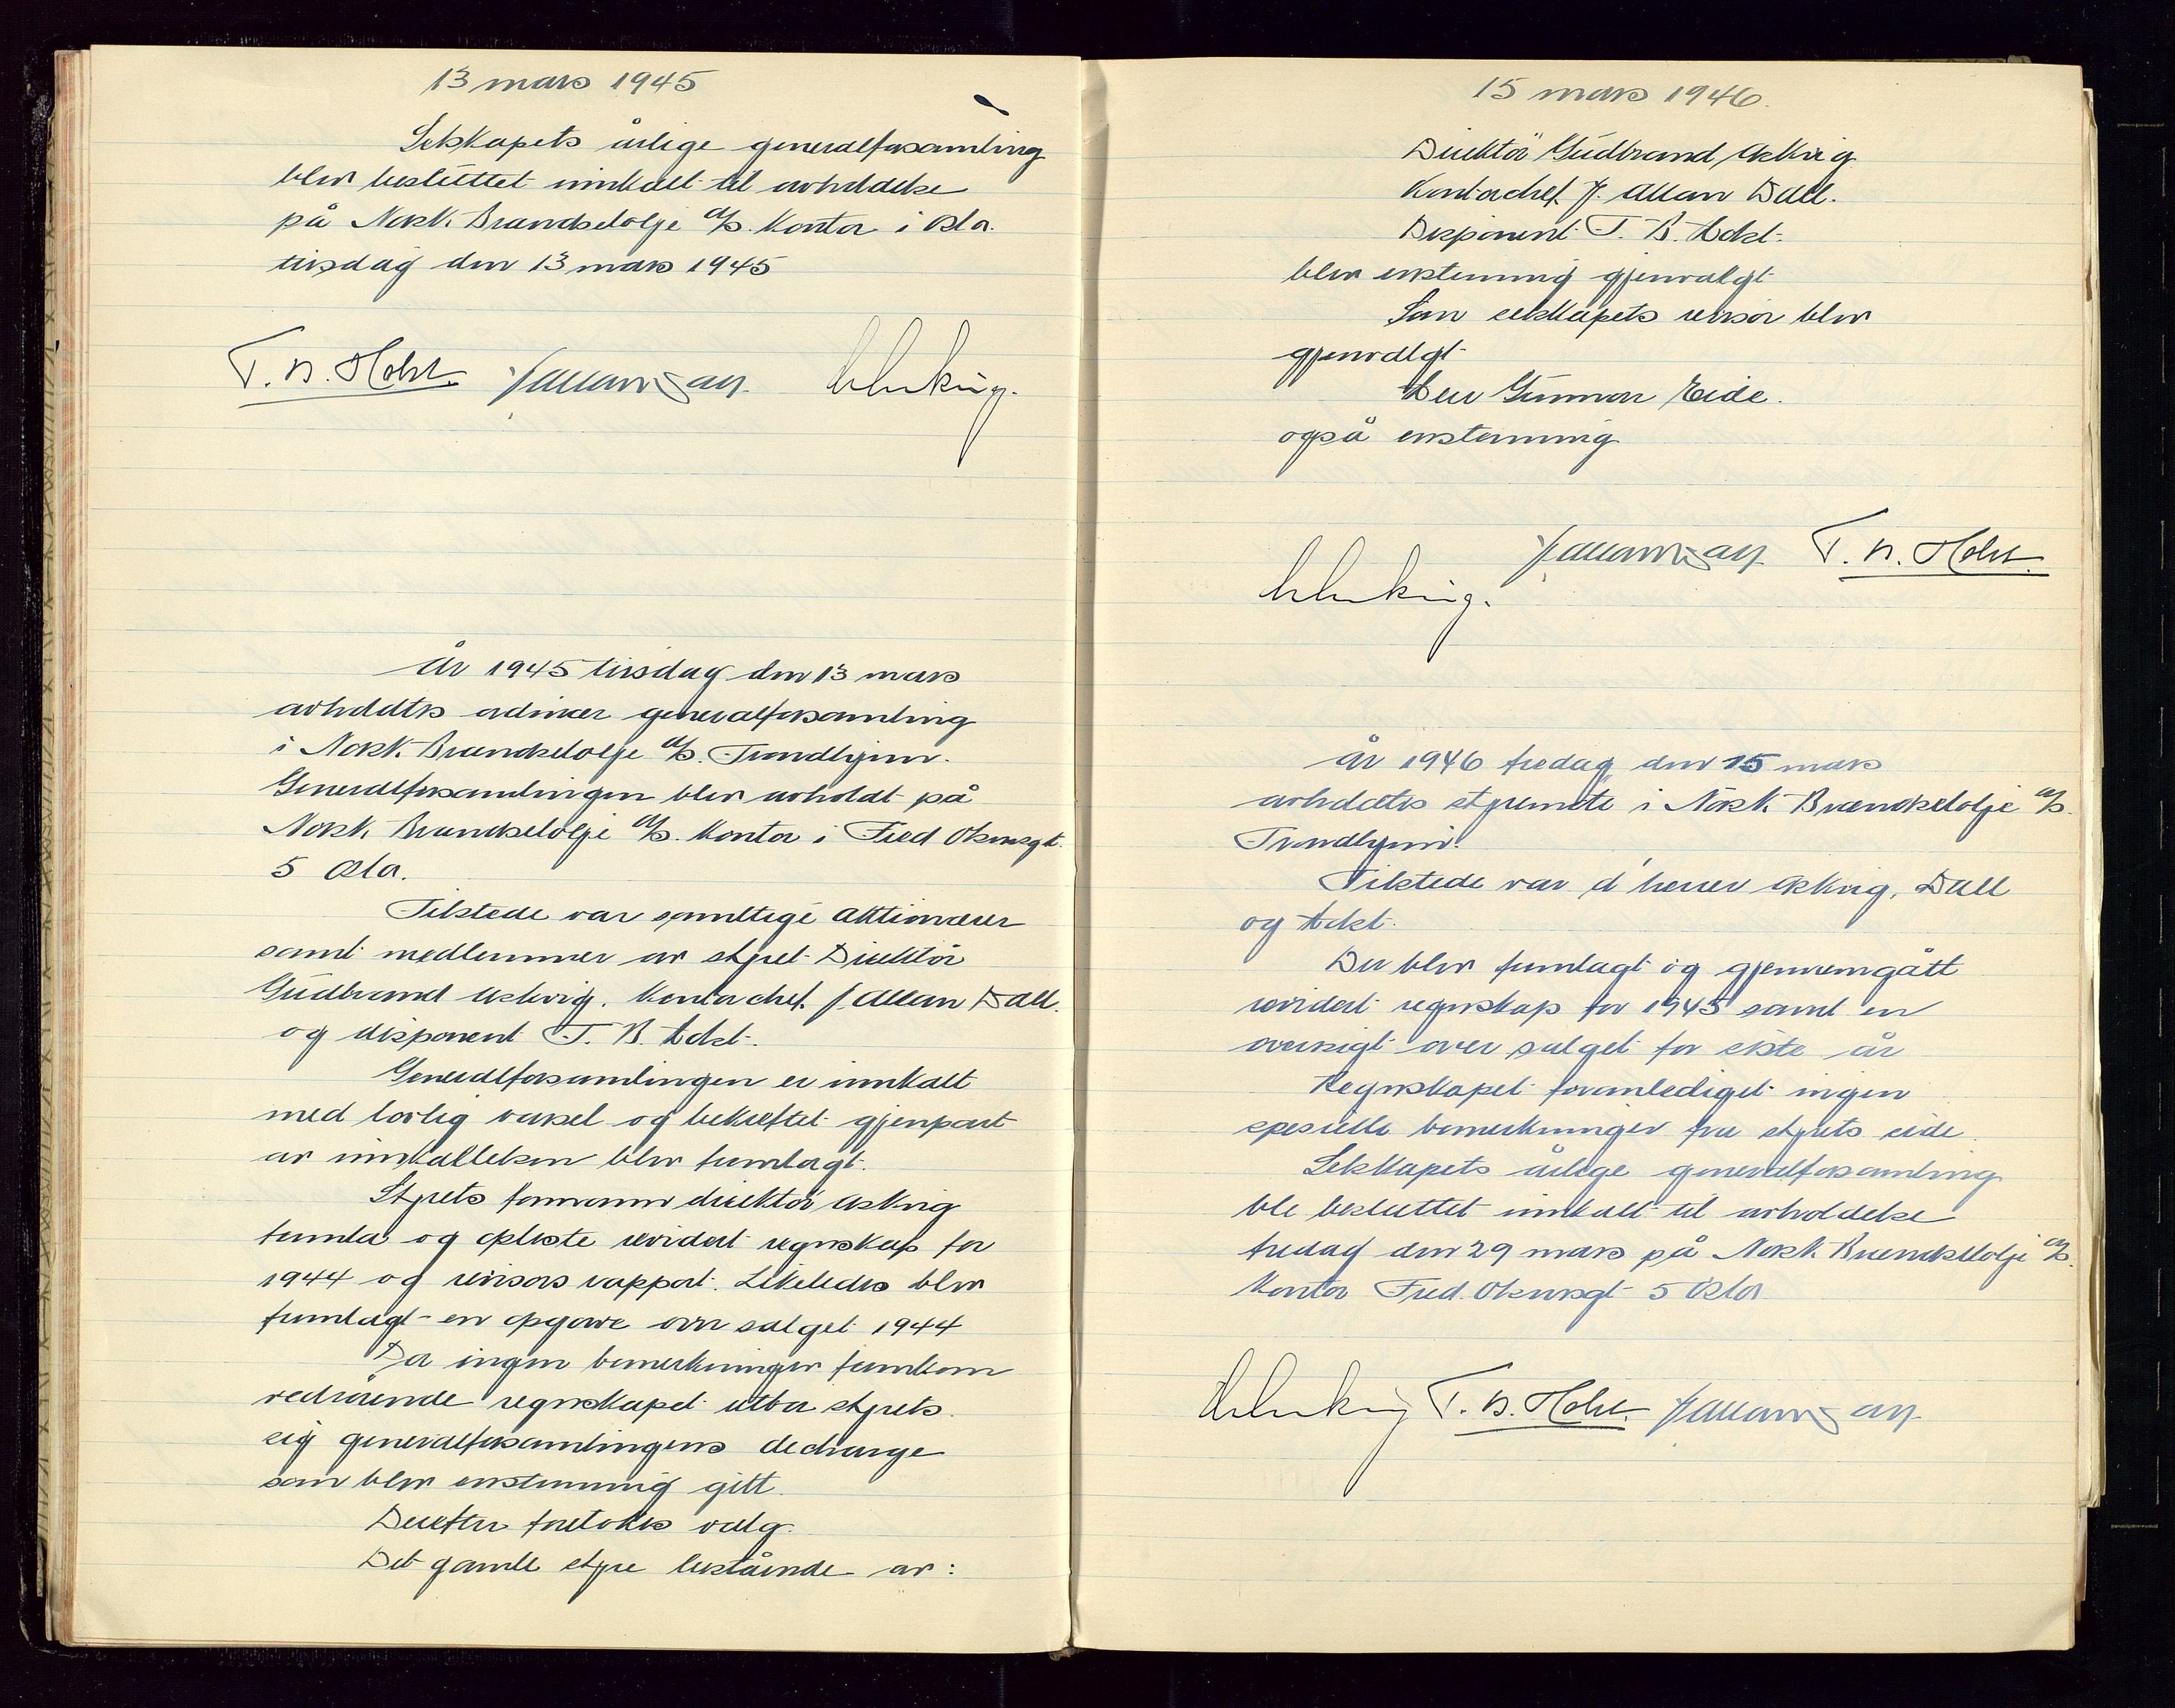 13 mars 1945
Selskapets årlige generalforsamling
blev besluttet innkalt til avholdelse
på Norsk Brændselolje A/S. Kontor i Oslo.
tirsdag den 13 mars 1945
T. B. Holst. J Allan Dall. Askvig.
År 1945 tirsdag den 13 mars
avholdtes ordinær generalforsamling
i Norsk Brændselolje A/S. Trondhjem.
Generalforsamlingen blev avholdt på
Norsk Brændselolje A/S. Kontor i Fred Olsensgt.
5 Oslo.
Tilstede var samtlige aktionærer
samt medlemmer av styret Direktör
Gudbrand Askvig. Kontorchef. J. Allan Dall.
og disponent T. B. Holst.
Generalforsamlingen er innkalt
med lovlig varsel og bekreftet gjenpart
av innkallelsen blev fremlagt.
Styrets formann direktör Askvig
fremla og opleste revidert regnskap for
1944 og revisors rapport. Likeledes blev
fremlagt en opgave over salget 1944
Da ingen bemerkninger fremkom
vedrörende regnskapet utba styrets
sig generalforsamlingens decharge
som blev enstemmig gitt.
Derefter foretokes valg.
Det gamle styre bestående av:
15 mars 1946.
Direktör Gudbrand Askvig
Kontorchef. J. Allan Dall.
Disponent T. B. Holst.
blev enstemmig gjenvalgt
Som selskapets revisor blev
gjenvalgt
Herr Gunnar Eide.
også enstemmig
J Allan Dall T. B. Holst.
Askvig.
År 1946 fredag den 15 mars
avholdtes styremöte i Norsk Brændselolje A/S.
Trondhjem.
Tilstede var d'herrer Askvig, Dall
og Holst.
Der blev fremlagt og gjennemgått
revidert regnskap for 1945 samt en
oversigt over salget for siste år
Regnskapet foranlediget ingen
spesielle bemerkninger fra styrets side.
Selskapets årlige generalforsamling
ble besluttet innkalt til avholdelse
fredag den 29 mars på Norsk Brændselolje A/S.
Kontor Fred. Olsensgt 5 Oslo
Askvig T. B. Holst. J Allan Dall